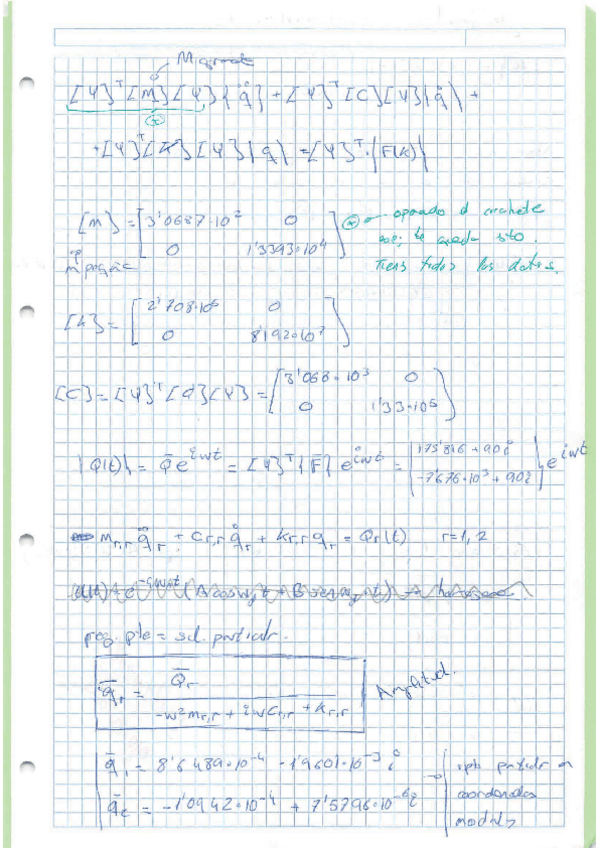 M grande
[Ψ]ᵀ[M][Ψ]{q̈} + [Ψ]ᵀ[C][Ψ]{q̇} +
(*)
+[Ψ]ᵀ[K][Ψ]{q} = [Ψ]ᵀ·{F(t)}
[m] = [3'0687·10² 0
0 1'3393·10⁴]
(*) operando a machete
te queda esto.
Tienes todos los datos.
m pequeña
[k] = [2'708·10⁶ 0
0 8'192·10⁷]
[C] = [Ψ]ᵀ[d][Ψ] = [3'068·10³ 0
0 1'33·10⁵]
{Q(t)} = Q̄e^{iωt} = [Ψ]ᵀ{F̄}e^{iωt} = {175'816 + 90i
-7'676·10³ + 90i} e^{iωt}
m_{r,r} q̈_r + c_{r,r} q̇_r + k_{r,r} q_r = Q_r(t) r=1, 2
reg. pte = sol. particular.
q̄_r = Q̄_r / (-ω²m_{r,r} + iωc_{r,r} + k_{r,r})
Amplitud.
q̄₁ = 8'6489·10⁻⁴ - 1'9601·10⁻³ i
q̄₂ = -1'0942·10⁻⁴ + 7'5796·10⁻⁶ i
→ rpta particular en
coordenadas
modales